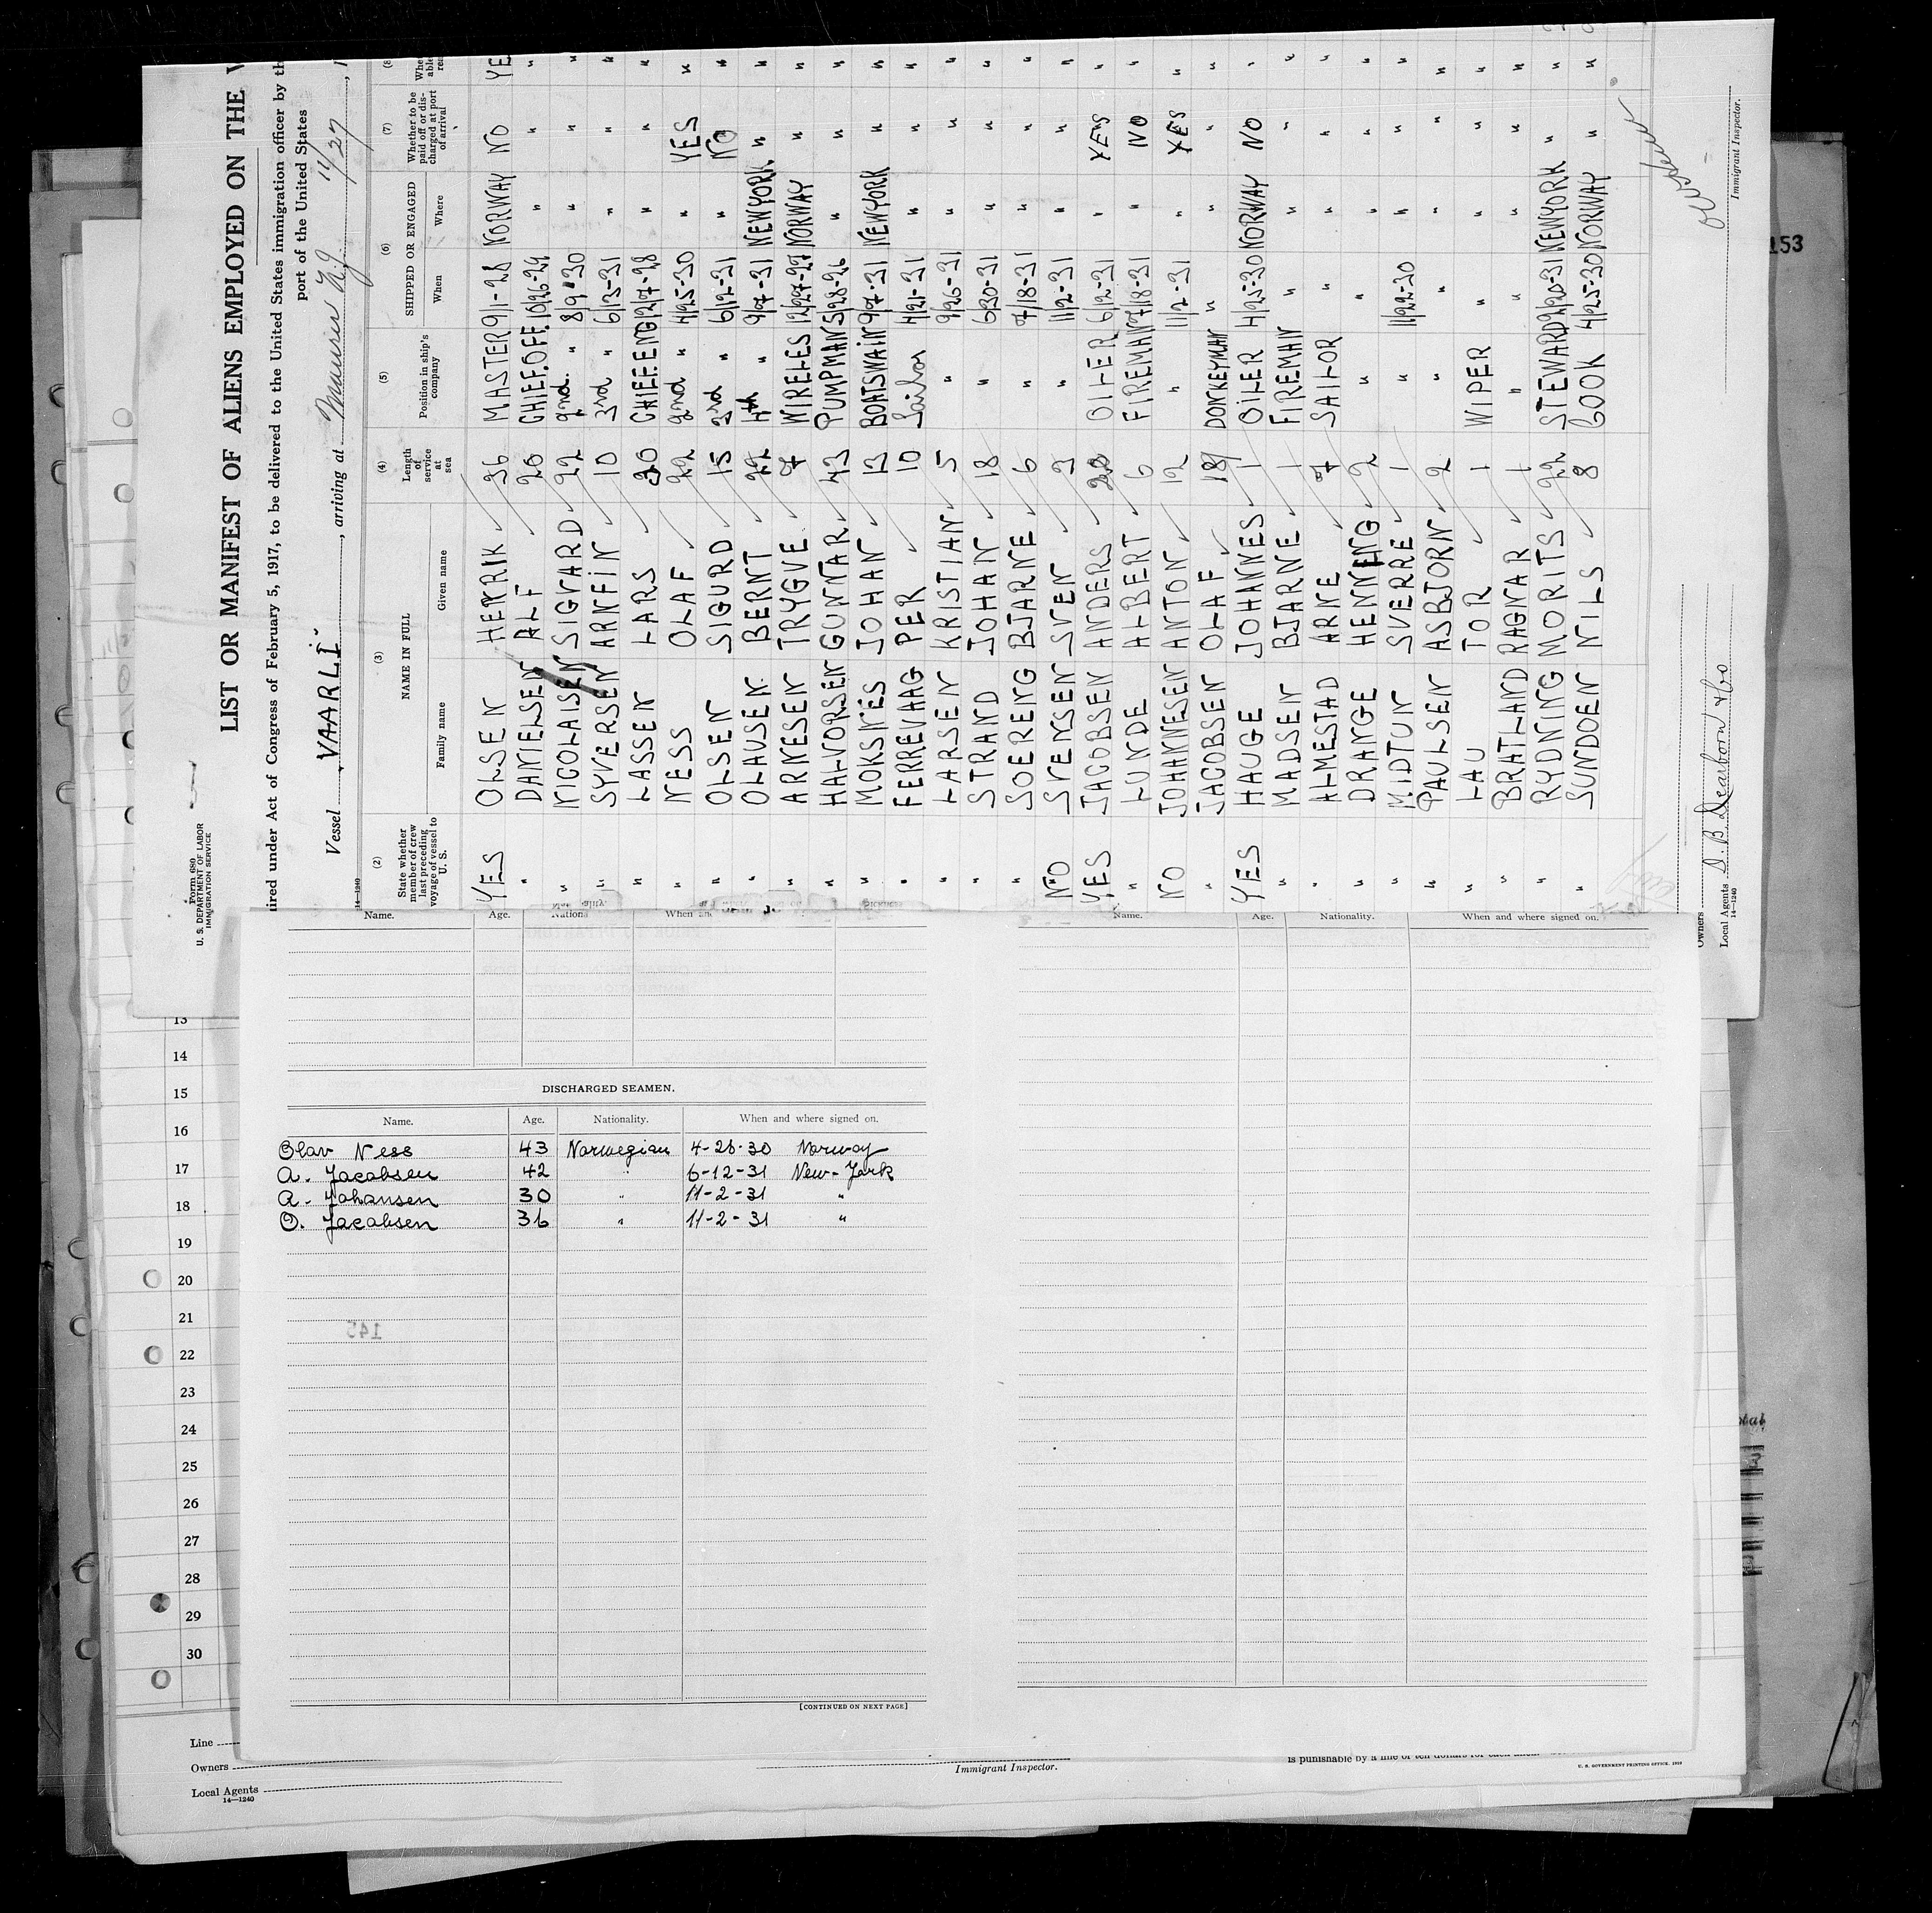 Form 680
U. S. DEPARTMENT OF LABOR
IMMIGRATION SERVICE
LIST OR MANIFEST OF ALIENS EMPLOYED ON THE
ired under Act of Congress of February 5, 1917, to be delivered to the United States immigration officer by th
port of the United States
Vessel VAARLI, arriving at 11/27
14—1240
(2) (3) (4) (5) (6) (7) (8
State whether member of crew last preceding voyage of vessel to U. S.
NAME IN FULL
Family name Given name
Length of service at sea
Position in ship's company
SHIPPED OR ENGAGED
When Where
Whether to be paid off or discharged at port of arrival
YES OLSEN HENRIK 36 MASTER 9/1-28 NORWAY NO YE
" DANIELSEN ALF 20 CHIEF.OFF. 10/26-29 " " "
" NICOLAISEN SIGVARD 22 2nd. " 8/9-30 " " "
" SYVERSEN ARNFIN 10 3rd " 6/13-31 " " "
" LASSEN LARS 30 CHIEF.ENG 12/7-28 " " "
" NESS OLAF 22 2nd " 4/25-30 " YES "
" OLSEN SIGURD 15 3rd " 6/12-31 " NO "
" OLAUSEN BERNT 22 4th " 9/7-31 NEWYORK " "
" ARNESEN TRYGVE 4 WIRELES 12/27-27 NORWAY " "
" HALVORSEN GUNNAR 43 PUMPMAN 5/28-26 " " "
" MOKSNES JOHAN 13 BOATSWAIN 9/7-31 NEWYORK " "
" FERREVAAG PER 10 Sailor 4/21-31 " " "
" LARSEN KRISTIAN 5 " 9/26-31 " " "
" STRAND JOHAN 18 " 6/30-31 " " "
" SOERENG BJARNE 6 " 7/18-31 " " "
NO SVENSEN SVEN 3 " 11/2-31 " " "
YES JACOBSEN ANDERS 20 OILER 6/12-31 " YES "
" LUNDE ALBERT 6 FIREMAN 7/18-31 " NO "
NO JOHANNESEN ANTON 12 " 11/2-31 " YES "
" JACOBSEN OLAF 18 DONKEYMAN " " " "
YES HAUGE JOHANNES 1 OILER 4/25-30 NORWAY NO "
" MADSEN BJARNE 1 FIREMAN " " " "
" ALMESTAD ARNE 4 SAILOR " " " "
" DRANGE HENNING 2 " " " " "
" MIDTUN SVERRE 1 " 11/22-30 " " "
" PAULSEN ASBJORN 2 " " " " "
" LAU TOR 1 WIPER " " " "
" BRATLAND RAGNAR 1 " " " " "
" RYDNING MORITS 22 STEWARD 2/20-31 NEWYORK " "
" SUNDOEN NILS 8 COOK 4/25-30 NORWAY " "
Immigrant Inspector.
Owners
Local Agents D. B. Dearborn & Co
14—1240
153
Name. Age. Nationa When and
Name. Age. Nationality. When and where signed on.
DISCHARGED SEAMEN.
Name. Age. Nationality. When and where signed on.
Olav Ness 43 Norwegian 4-28-30 Norway
A. Jacobsen 42 " 6-12-31 New-York
A. Johansen 30 " 11-2-31 "
O. Jacobsen 36 " 11-2-31 "
145
[CONTINUED ON NEXT PAGE]
13
14
15
16
17
18
19
20
21
22
23
24
25
26
27
28
29
30
Line
Owners
Local Agents
14—1240
Immigrant Inspector.
is punishable by a fine of ten dollars for each
U. S. GOVERNMENT PRINTING OFFICE